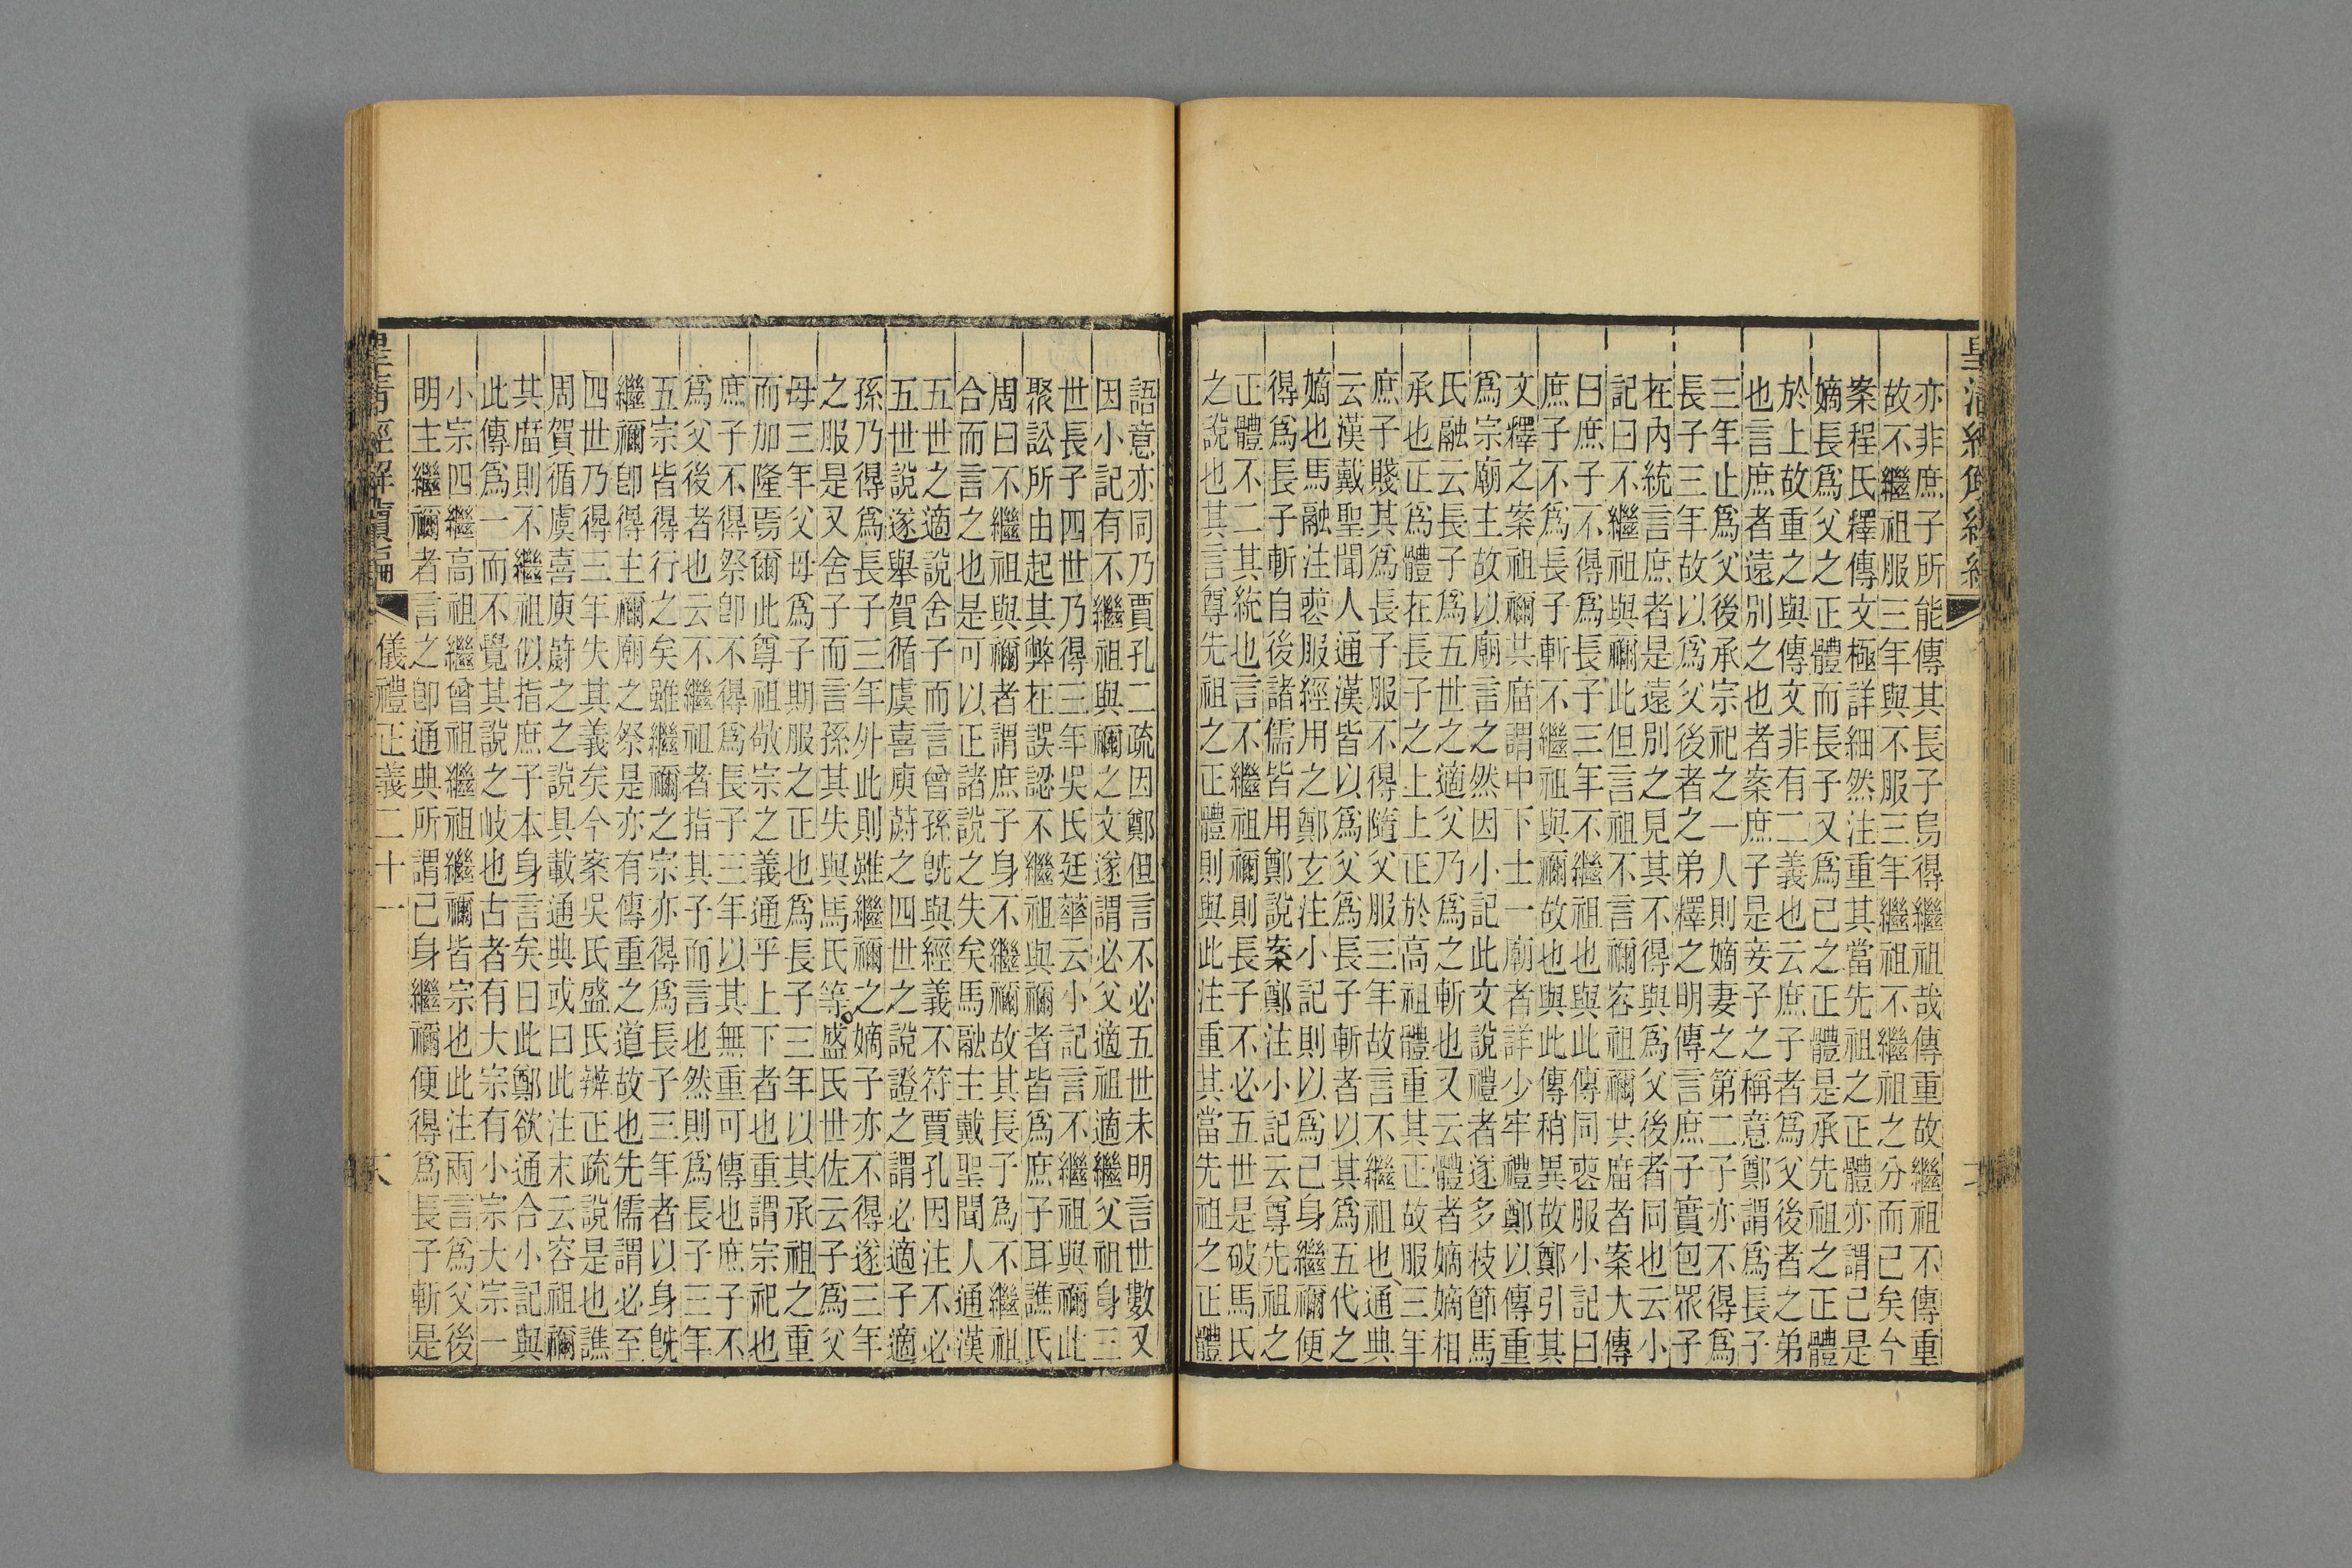 皇清經解續編
亦非庶子所能傳其長子烏得繼祖哉傳重故繼祖不傳重
故不繼祖服三年與不服三年繼祖不繼祖之分而已矣今
案程氏釋傳文極詳細然注重其當先祖之正體亦謂己是
嫡長爲父之正體而長子又爲已之正體是承先祖之正體
於上故重之與傳文非有二義也云庶子者爲父後者之弟
也言庶者遠別之也者案庶子是妾子之稱意鄭謂爲長子
三年止爲父後承宗祀之一人則嫡妻之第二子亦不得爲
長子三年故以爲父後者之弟釋之明傳言庶子實包眾子
在内統言庶者是遠別之見其不得與爲父後者同也云小
記曰不繼祖與禰此但言祖不言禰容祖禰共庿者案大傳
曰庶子不得爲長子三年不繼祖也與此傳同喪服小記曰
庶子不爲長子斬不繼祖與禰故也與此傳稍異故鄭引其
文釋之案祖禰共庿謂中下士一廟者詳少牢禮鄭以傳重
爲宗廟主故以廟言之然因小記此文說禮者遂多枝節馬
氏融云長子爲五世之適父乃爲之斬也又云體者嫡嫡相
承也正爲體在長子之上上正於高祖體重其正故服三年
庶子賤其爲長子服不得隨父服三年故言不繼祖也通典
云漢戴聖聞人通漢皆以爲父爲長子斬者以其爲五代之
嫡也馬融注喪服經用之鄭玄注小記則以爲己身繼禰便
得爲長子斬自後諸儒皆用鄭說案鄭注小記云尊先祖之
正體不二其統也言不繼祖禰則長子不必五世是破馬氏
之說也其言尊先祖之正體則與此注重其當先祖之正體
語意亦同乃賈孔二疏因鄭但言不必五世未明言世數又
因小記有不繼祖與禰之文遂謂必父適祖適繼父祖身三
世長子四世乃得三年吳氏廷華云小記言不繼祖與禰此
聚訟所由起其弊在誤認不繼祖與禰者皆爲庶子耳譙氏
周曰不繼祖與禰者謂庶子身不繼禰故其長子爲不繼祖
合而言之也是可以正諸說之失矣馬融主戴聖聞人通漢
五世之適說舍子而言曾孫旣與經義不符賈孔因注不必
五世說遂舉賀循虞喜庾蔚之四世之說證之謂必適子適
孫乃得爲長子三年外此則雖繼禰之嫡子亦不得遂三年
之服是又舍子而言孫其失與馬氏等盛氏世佐云子爲父
母三年父母爲子期服之正也爲長子三年以其承祖之重
而加隆焉爾此尊祖敬宗之義通乎上下者也重謂宗祀也
庶子不得祭卽不得爲長子三年以其無重可傳也庶子不
爲父後者也云不繼祖者指其子而言也然則爲長子三年
五宗皆得行之矣雖繼禰之宗亦得爲長子三年者以身旣
繼禰卽得主禰廟之祭是亦有傳重之道故也先儒謂必至
四世乃得三年失其義矣今案吳氏盛氏辨正疏說是也譙
周賀循虞喜庾蔚之之說具載通典或曰此注末云容祖禰
其庿則不繼祖似指庶子本身言矣曰此鄭欲通合小記與
此傳爲一而不覺其說之岐也古者有大宗有小宗大宗一
小宗四繼高祖繼曾祖繼祖繼禰皆宗也此注兩言爲父後
明主繼禰者言之卽通典所謂己身繼禰便得爲長子斬是
皇清經解續編
儀禮正義二十一